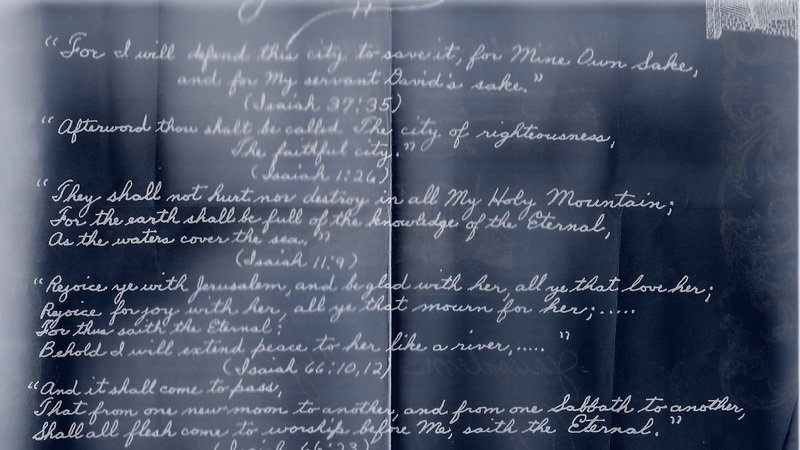 "For I will defend this city to save it, for Mine Own Sake,
and for My servant David's sake."
(Isaiah 37:35)
"Afterword thou shalt be called The city of righteousness,
The faithful city."
(Isaiah 1:26)
"They shall not hurt nor destroy in all My Holy Mountain;
For the earth shall be full of the knowledge of the Eternal,
As the waters cover the sea."
(Isaiah 11:9)
"Rejoice ye with Jerusalem, and be glad with her, all ye that love her;
Rejoice for joy with her, all ye that mourn for her;.....
For thus saith the Eternal:
Behold I will extend peace to her like a river,....."
(Isaiah 66:10,12)
"And it shall come to pass,
That from one new moon to another, and from one Sabbath to another,
Shall all flesh come to worship before Me, saith the Eternal."
(Isaiah 66:23)